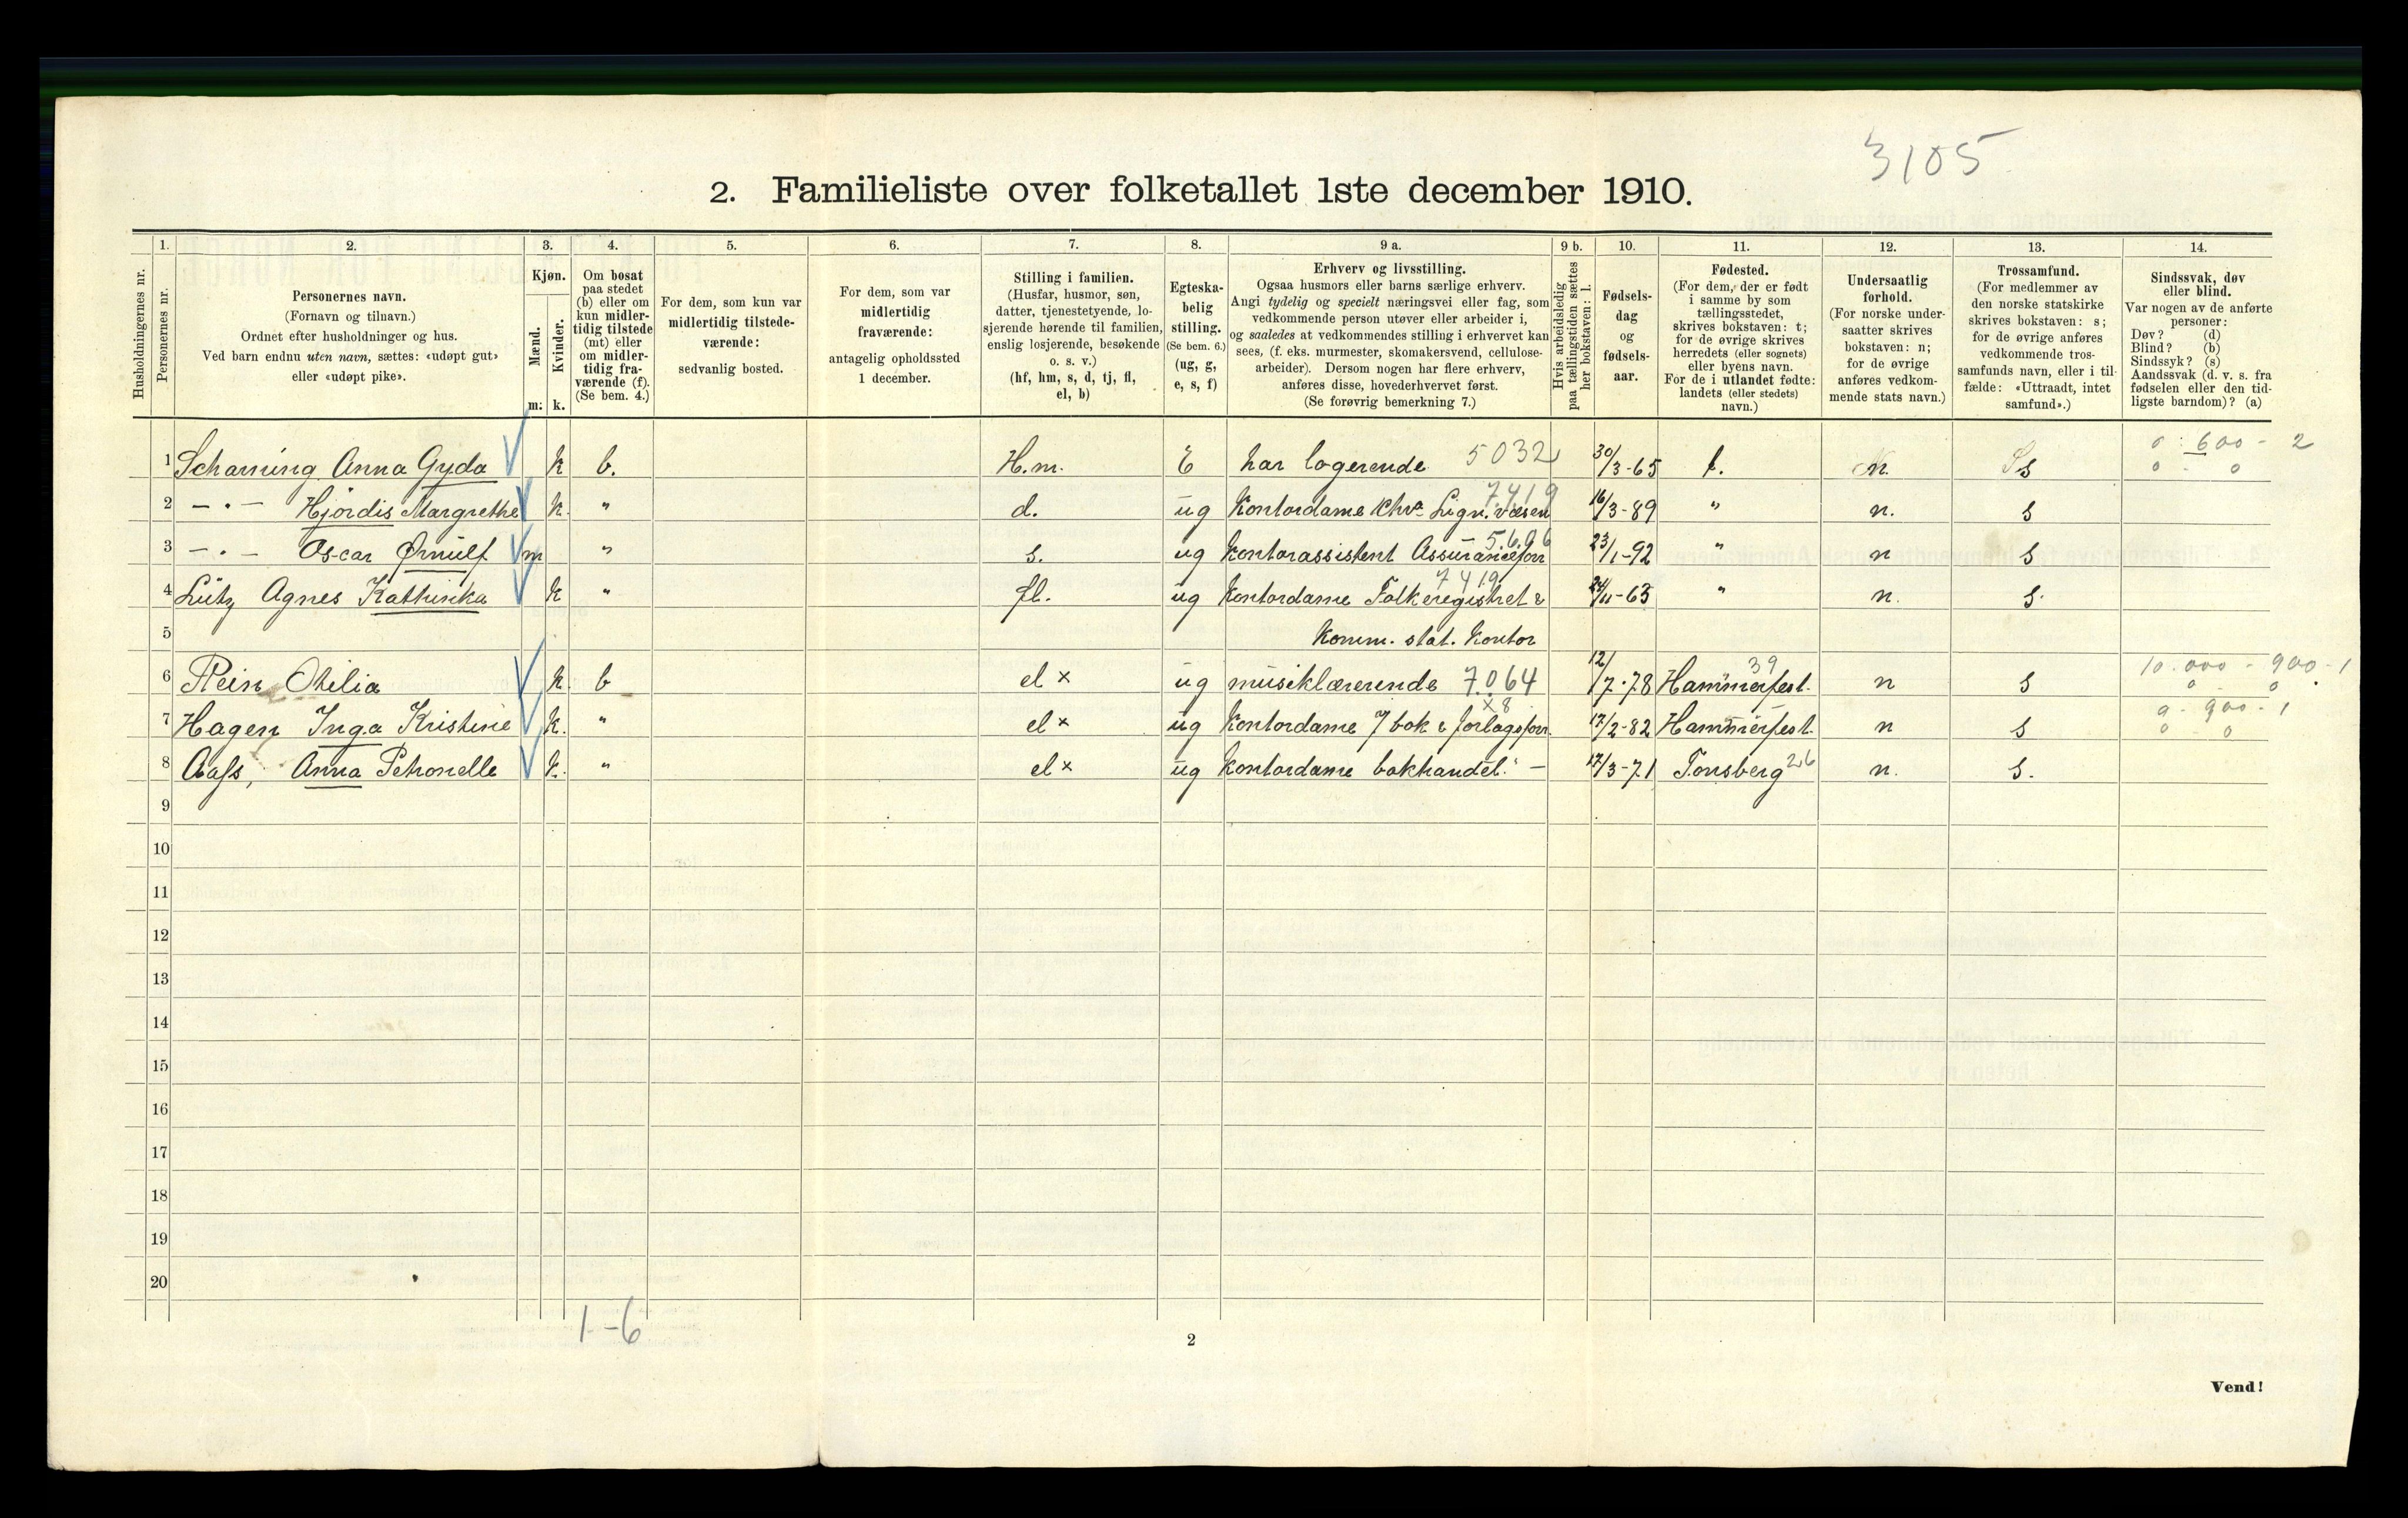 3105
2. Familieliste over folketallet 1ste december 1910.
1. 2. 3. 4. 5. 6. 7. 8. 9 a. 9 b. 10. 11. 12. 13. 14.
Husholdningernes nr.
Personernes nr.
Personernes navn.
(Fornavn og tilnavn.)
Ordnet efter husholdninger og hus.
Ved barn endnu uten navn, sættes: «udøpt gut»
eller «udøpt pike».
Kjøn.
Mænd.
Kvinder.
m. k.
Om bosat
paa stedet
(b) eller om
kun midler-
tidig tilstede
(mt) eller
om midler-
tidig fra-
værende (f).
(Se bem. 4.)
For dem, som kun var
midlertidig tilstede-
værende:
sedvanlig bosted.
For dem, som var
midlertidig
fraværende:
antagelig opholdssted
1 december.
Stilling i familien.
(Husfar, husmor, søn,
datter, tjenestetyende, lo-
sjerende hørende til familien,
enslig losjerende, besøkende
o. s. v.)
(hf, hm, s, d, tj, fl,
el, b)
Egteska-
belig
stilling.
(Se bem. 6.)
(ug, g,
e, s, f)
Erhverv og livsstilling.
Ogsaa husmors eller barns særlige erhverv.
Angi tydelig og specielt næringsvei eller fag, som
vedkommende person utøver eller arbeider i,
og saaledes at vedkommendes stilling i erhvervet kan
sees, (f. eks. murmester, skomakersvend, cellulose-
arbeider). Dersom nogen har flere erhverv,
anføres disse, hovederhvervet først.
(Se forøvrig bemerkning 7.)
Hvis arbeidsledig
paa tællingstiden sættes
her bokstaven: l.
Fødsels-
dag
og
fødsels-
aar.
Fødested.
(For dem, der er født
i samme by som
tællingsstedet,
skrives bokstaven: t;
for de øvrige skrives
herredets (eller sognets)
eller byens navn.
For de i utlandet fødte:
landets (eller stedets)
navn.)
Undersaatlig
forhold.
(For norske under-
saatter skrives
bokstaven: n;
for de øvrige
anføres vedkom-
mende stats navn.)
Trossamfund.
(For medlemmer av
den norske statskirke
skrives bokstaven: s;
for de øvrige anføres
vedkommende tros-
samfunds navn, eller i til-
fælde: «Uttraadt, intet
samfund».)
Sindssvak, døv
eller blind.
Var nogen av de anførte
personer:
Døv? (d)
Blind? (b)
Sindssyk? (s)
Aandssvak (d. v. s. fra
fødselen eller den tid-
ligste barndom)? (a)
0 - 600 - 2
1 Scharning Anna Gyda k b. H.m. E har logerende 5032 30/3-65 t. N. s 0 - 0
7419
2 - " - Hjördis Margrethe k. " d. ug Kontordame Chra Lign. væsen 16/3-89 " n. s
5606
3 - " - Oscar Ørnulf m " s. ug kontorassistent Assuranceforr 23/1-92 " n s
7419
4 Lütz Agnes Kathinka k " fl. ug Kontordame Folkeregistret & 24/11-63 " n. s.
5 Komm. stat. Kontor
39 10.000 - 900 - 1
6 Rein Othilia k. b el x ug musiklærerinde 7064 12/7-78 Hammerfest. n s 0 - 0
x8 0 - 900 - 1
7 Hagen Inga Kristine k. " el x ug Kontordame i bok & forlagsforr. 17/2-82 Hammerfest. n s 0 - 0
8 Aass, Anna Petronelle k. " el x ug kontordame bokhandel. " - 17/3-71 Tonsberg 26 n. s.
9
10
11
12
13
14
15
16
17
18
19
20
1-6
2
Vend!